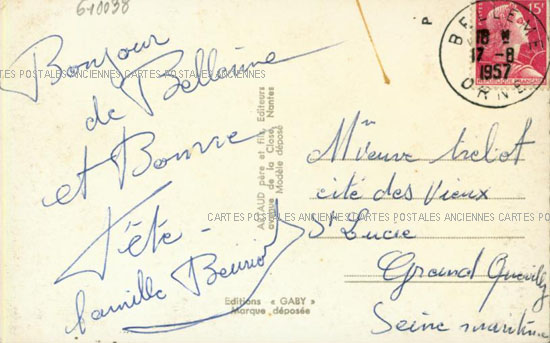 610038
Bonjour
de Bellême
et Bonne
fête
famille
P
BELLEME
18 H
17 - 8
1957
ORNE
15F
CARTES POSTALES ANCIENNES CARTES POSTALES ANCIENNES CARTES POSTALES ANCIENNES CARTES POSTALES ANCIENNES
ARTAUD père et fils, Editeurs
avenue de la Close, Nantes
Modèle déposé
Editions « GABY »
Marque déposée
cité des Vieux
CARTES POSTALES ANCIENNES CARTES POSTALES ANCIENNES CARTES POSTALES
Ste Lucie
Grand Quevilly
Seine maritime